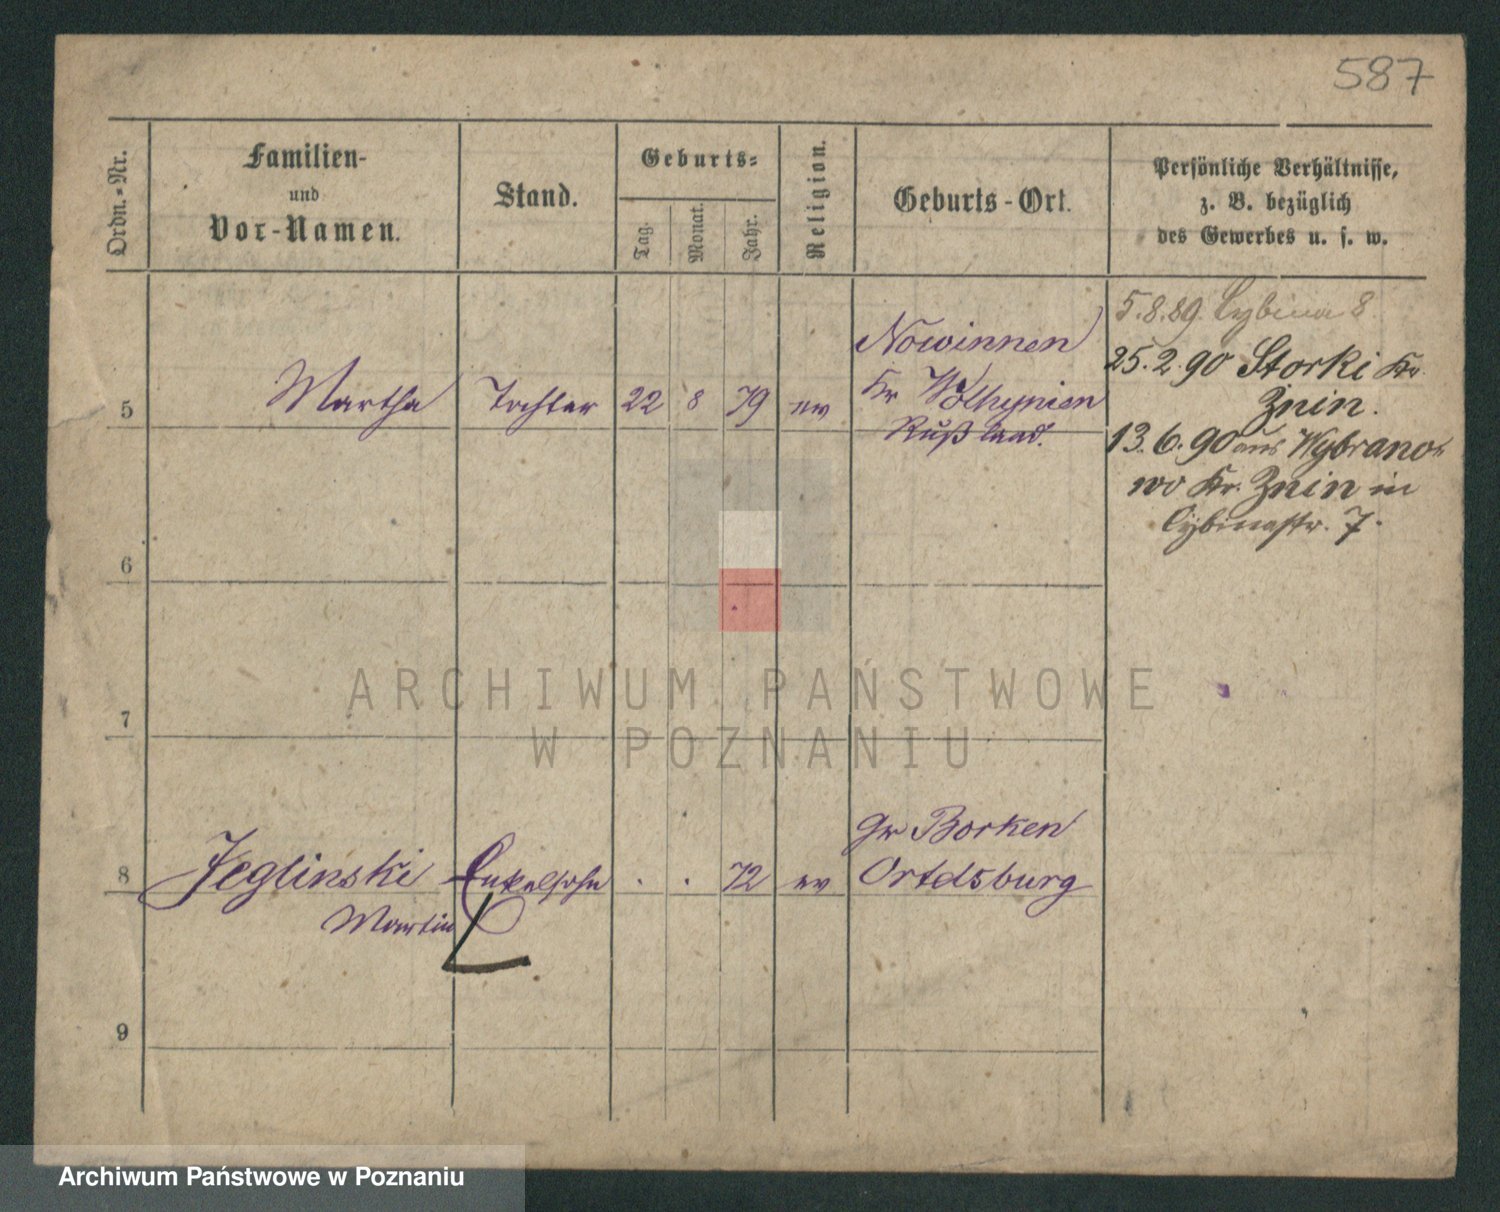 587
Ordn.-Nr.
Familien-
und
Vor-Namen.
Stand.
Geburts-
Tag.
Monat.
Jahr.
Religion.
Geburts-Ort.
Persönliche Verhältnisse,
z. B. bezüglich
des Gewerbes u. s. w.
5 Martha Tochter 22 8 79 ev
Nowinnen
Kr Wolhynien
Rußland.
5.8.89. Cybina 8.
25.2.90 Storki Kr.
Znin.
13.6.90 aus Wybrano-
wo Kr. Znin in
Cybinastr. 7.
6
7
8 Jeglinski Enkelsohn . . 72 ev
Martin
Gr Borken
Ortdsburg
9
ARCHIWUM PAŃSTWOWE
W POZNANIU
Archiwum Państwowe w Poznaniu